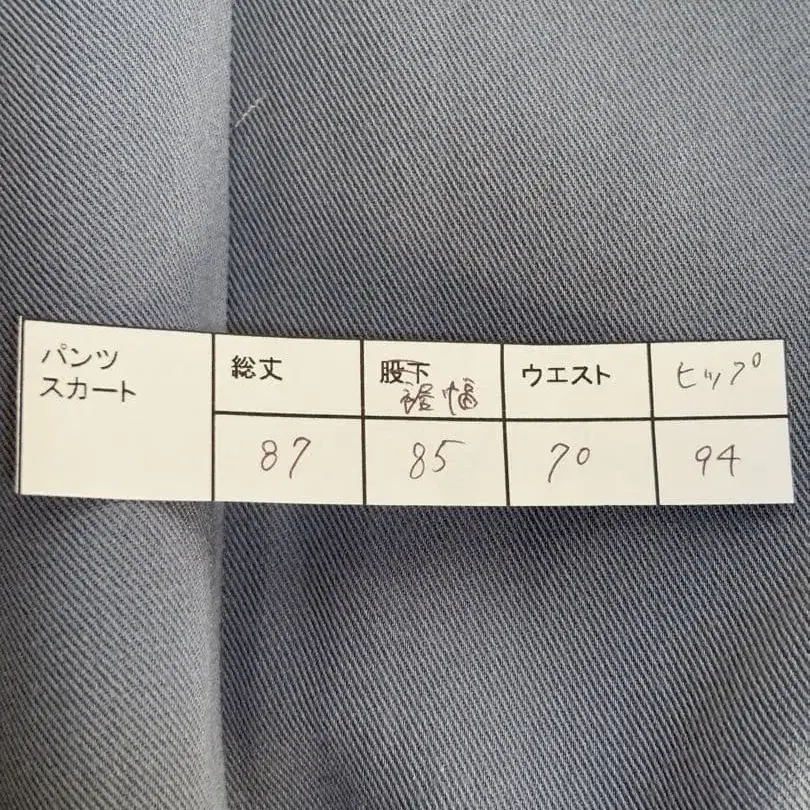 パンツ
スカート
総丈
股下
裾幅
ウエスト
ヒップ
87
85
70
94